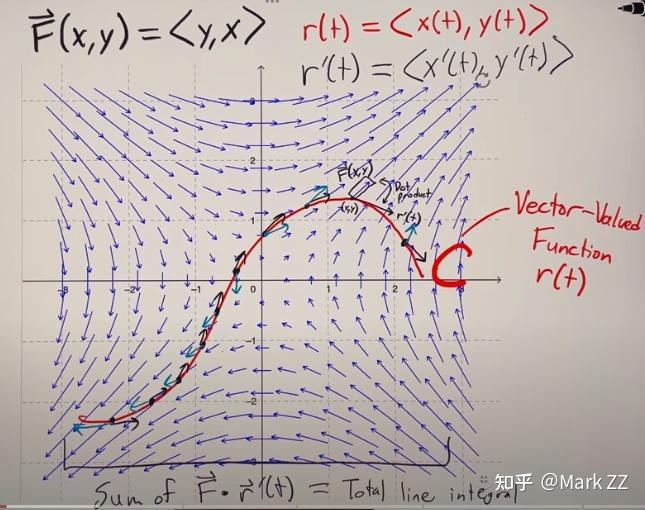 F⃗(x,y) = <y,x>
r(t) = <x(t), y(t)>
r'(t) = <x'(t), y'(t)>
3
2
1
-3 -2 -1 0 1 2 3
-1
-2
-3
F⃗(x,y)
Dot product
(x,y)
r'(t)
Vector-Valued
Function
r(t)
C
Sum of F⃗ · r⃗'(t) = Total line integral
知乎 @Mark ZZ